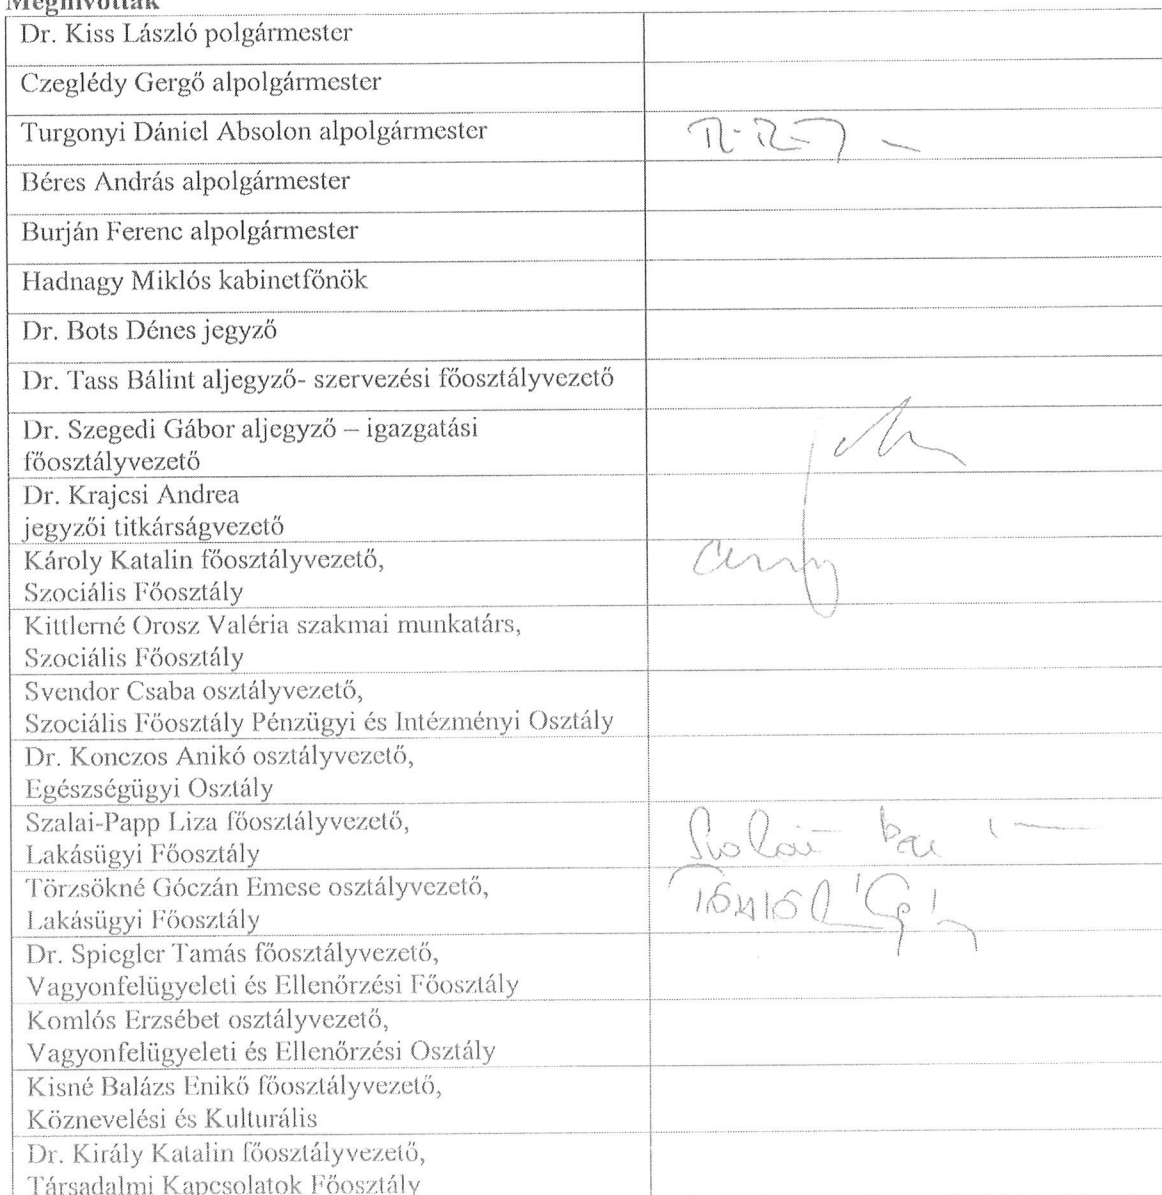 Meghívottak
Dr. Kiss László polgármester
Czeglédy Gergő alpolgármester
Turgonyi Dániel Absolon alpolgármester
Béres András alpolgármester
Burján Ferenc alpolgármester
Hadnagy Miklós kabinetfőnök
Dr. Bots Dénes jegyző
Dr. Tass Bálint aljegyző- szervezési főosztályvezető
Dr. Szegedi Gábor aljegyző – igazgatási
főosztályvezető
Dr. Krajcsi Andrea
jegyzői titkárságvezető
Károly Katalin főosztályvezető,
Szociális Főosztály
Kittlerné Orosz Valéria szakmai munkatárs,
Szociális Főosztály
Svendor Csaba osztályvezető,
Szociális Főosztály Pénzügyi és Intézményi Osztály
Dr. Konczos Anikó osztályvezető,
Egészségügyi Osztály
Szalai-Papp Liza főosztályvezető,
Lakásügyi Főosztály
Törzsökné Góczán Emese osztályvezető,
Lakásügyi Főosztály
Dr. Spiegler Tamás főosztályvezető,
Vagyonfelügyeleti és Ellenőrzési Főosztály
Komlós Erzsébet osztályvezető,
Vagyonfelügyeleti és Ellenőrzési Osztály
Kisné Balázs Enikő főosztályvezető,
Köznevelési és Kulturális
Dr. Király Katalin főosztályvezető,
Társadalmi Kapcsolatok Főosztály